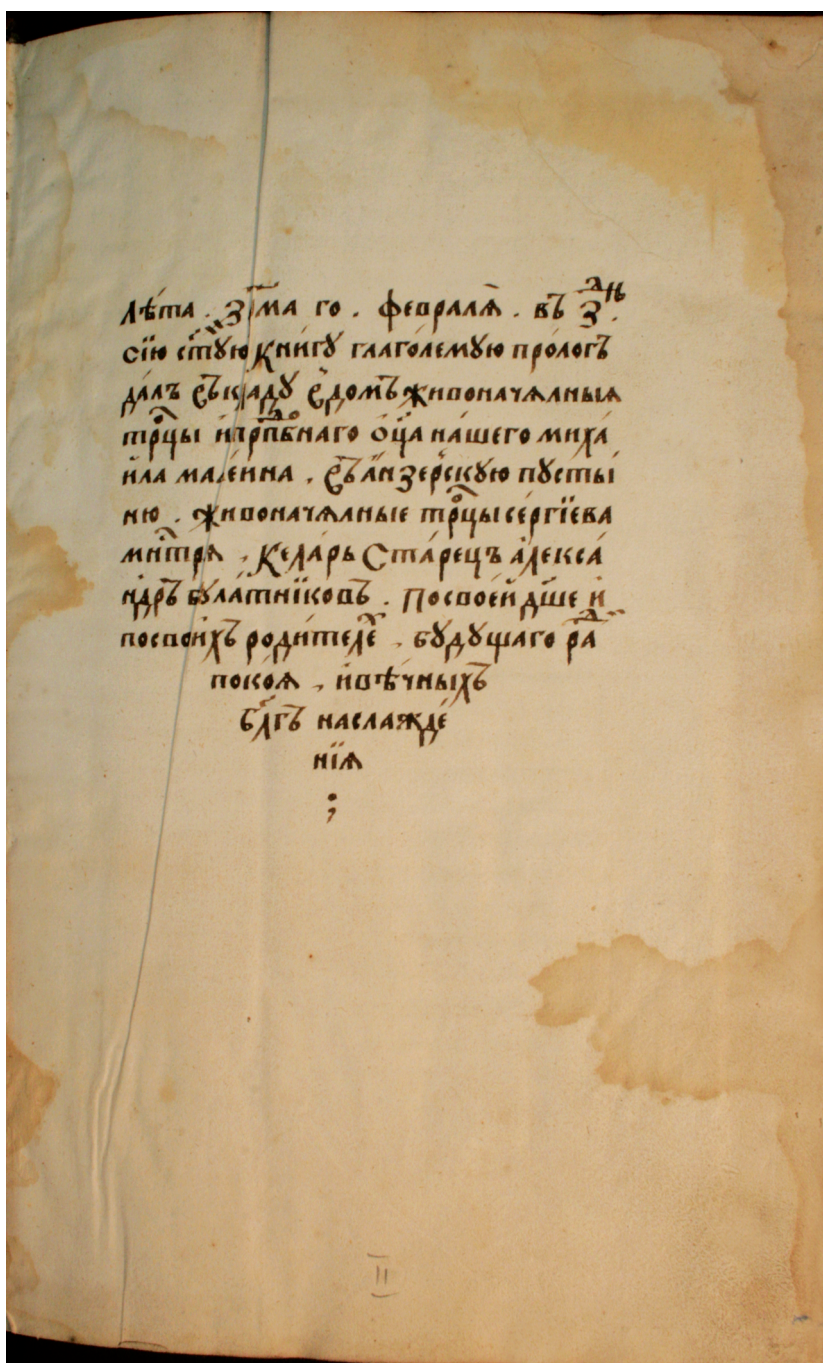 лѣ́та . ҂зр҃ма го . февралѧ̀ . въ з҃ дн҃ь .
сїю̀ ст҃ꙋ́ю кни́гꙋ глаго́лемꙋю проло́гъ
да́лъ въкла́дꙋ в̾домъ живонача́лныѧ
трⷪ҇цы и҆прпⷣбнаго ѻ҆ц҃а на́шего миха
и́ла мале́ина . въа́нзерскꙋю пꙋсты́
ню . живонача́лные трⷪ҇цы се́ргїева
мнⷭ҇трѧ̀ . ке́ларь ста́рецъ а҆леѯа́
ндръ бꙋла́тниковъ . посвое́й дш҃е и҆
посвои́хъ роди́телеⷯ . бꙋ́дꙋщаго раⷣ
поко́ѧ , и҆вѣ́чныхъ
бл҃гъ наслажде́
нїѧ
;
II